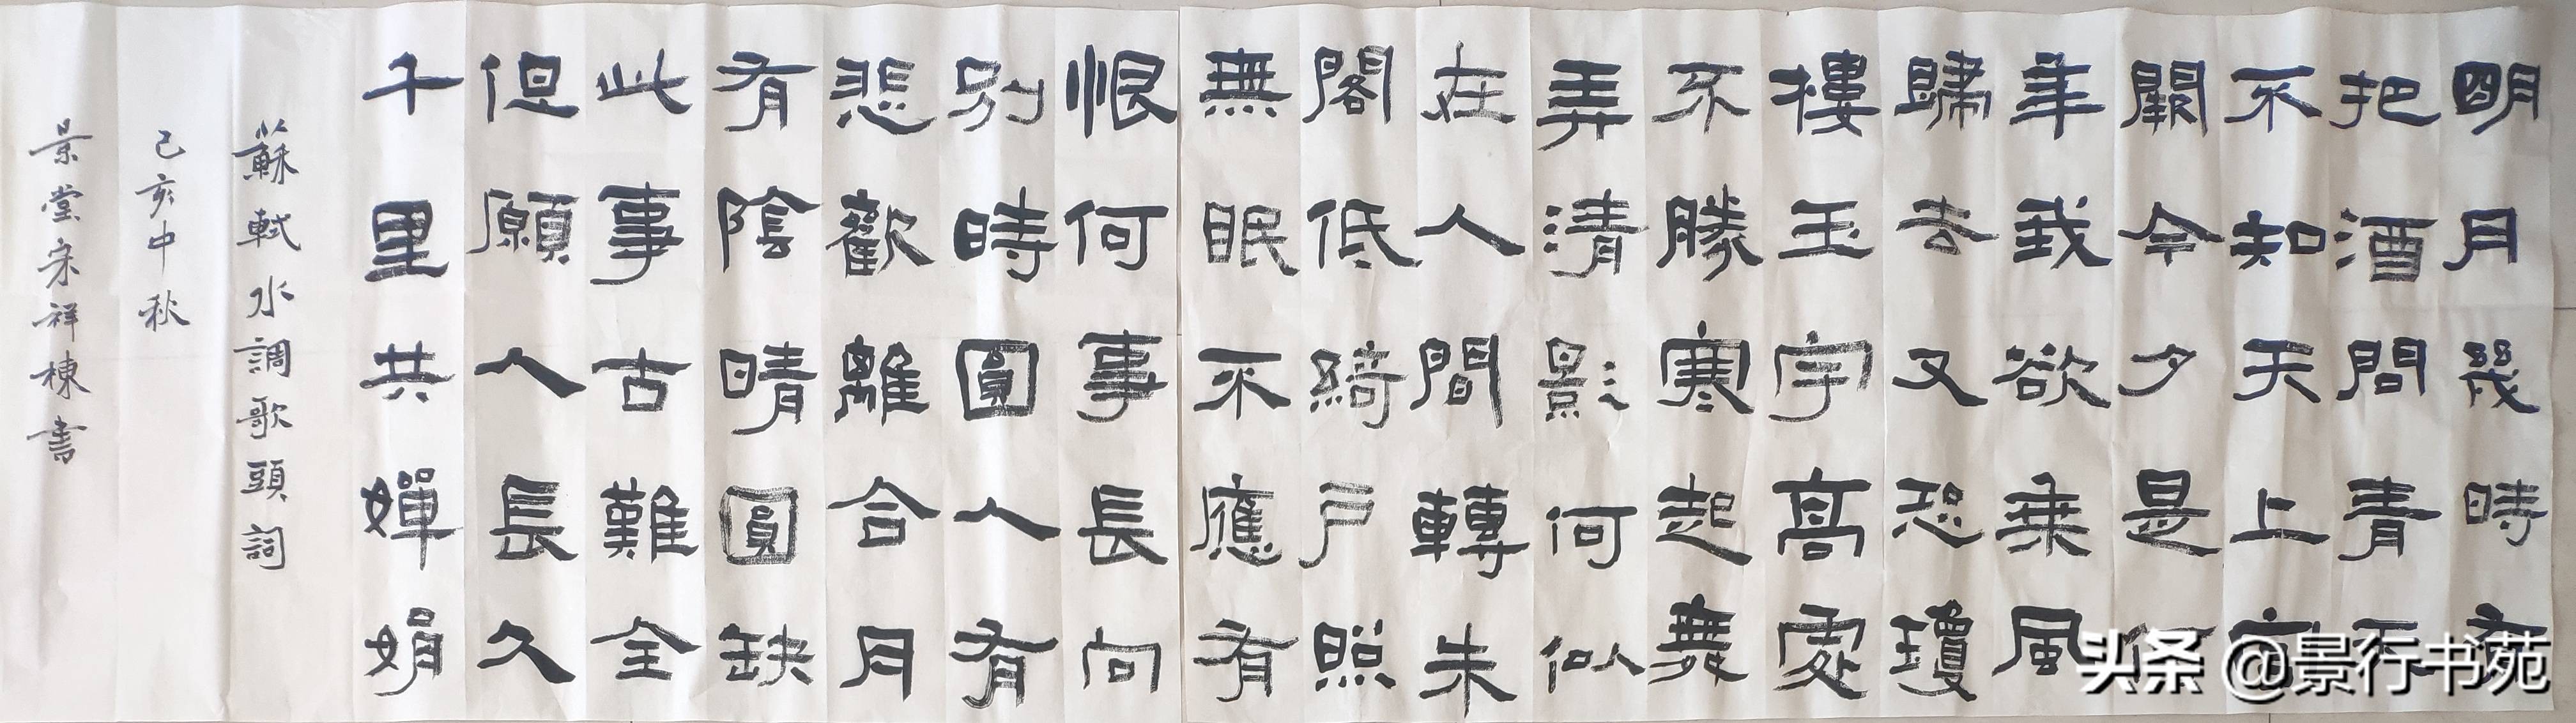 明月幾時有
把酒問青天
不知天上宮
闕今夕是何
年我欲乗風
歸去又恐瓊
樓玉宇高處
不勝寒起舞
弄清影何似
在人間轉朱
閣低綺戶照
無眠不應有
恨何事長向
别時圓人有
悲歡離合月
有陰晴圓缺
此事古難全
但願人長久
千里共嬋娟
蘇軾水調歌頭詞
己亥中秋
景堂宋祥棟書
头条 @景行书苑